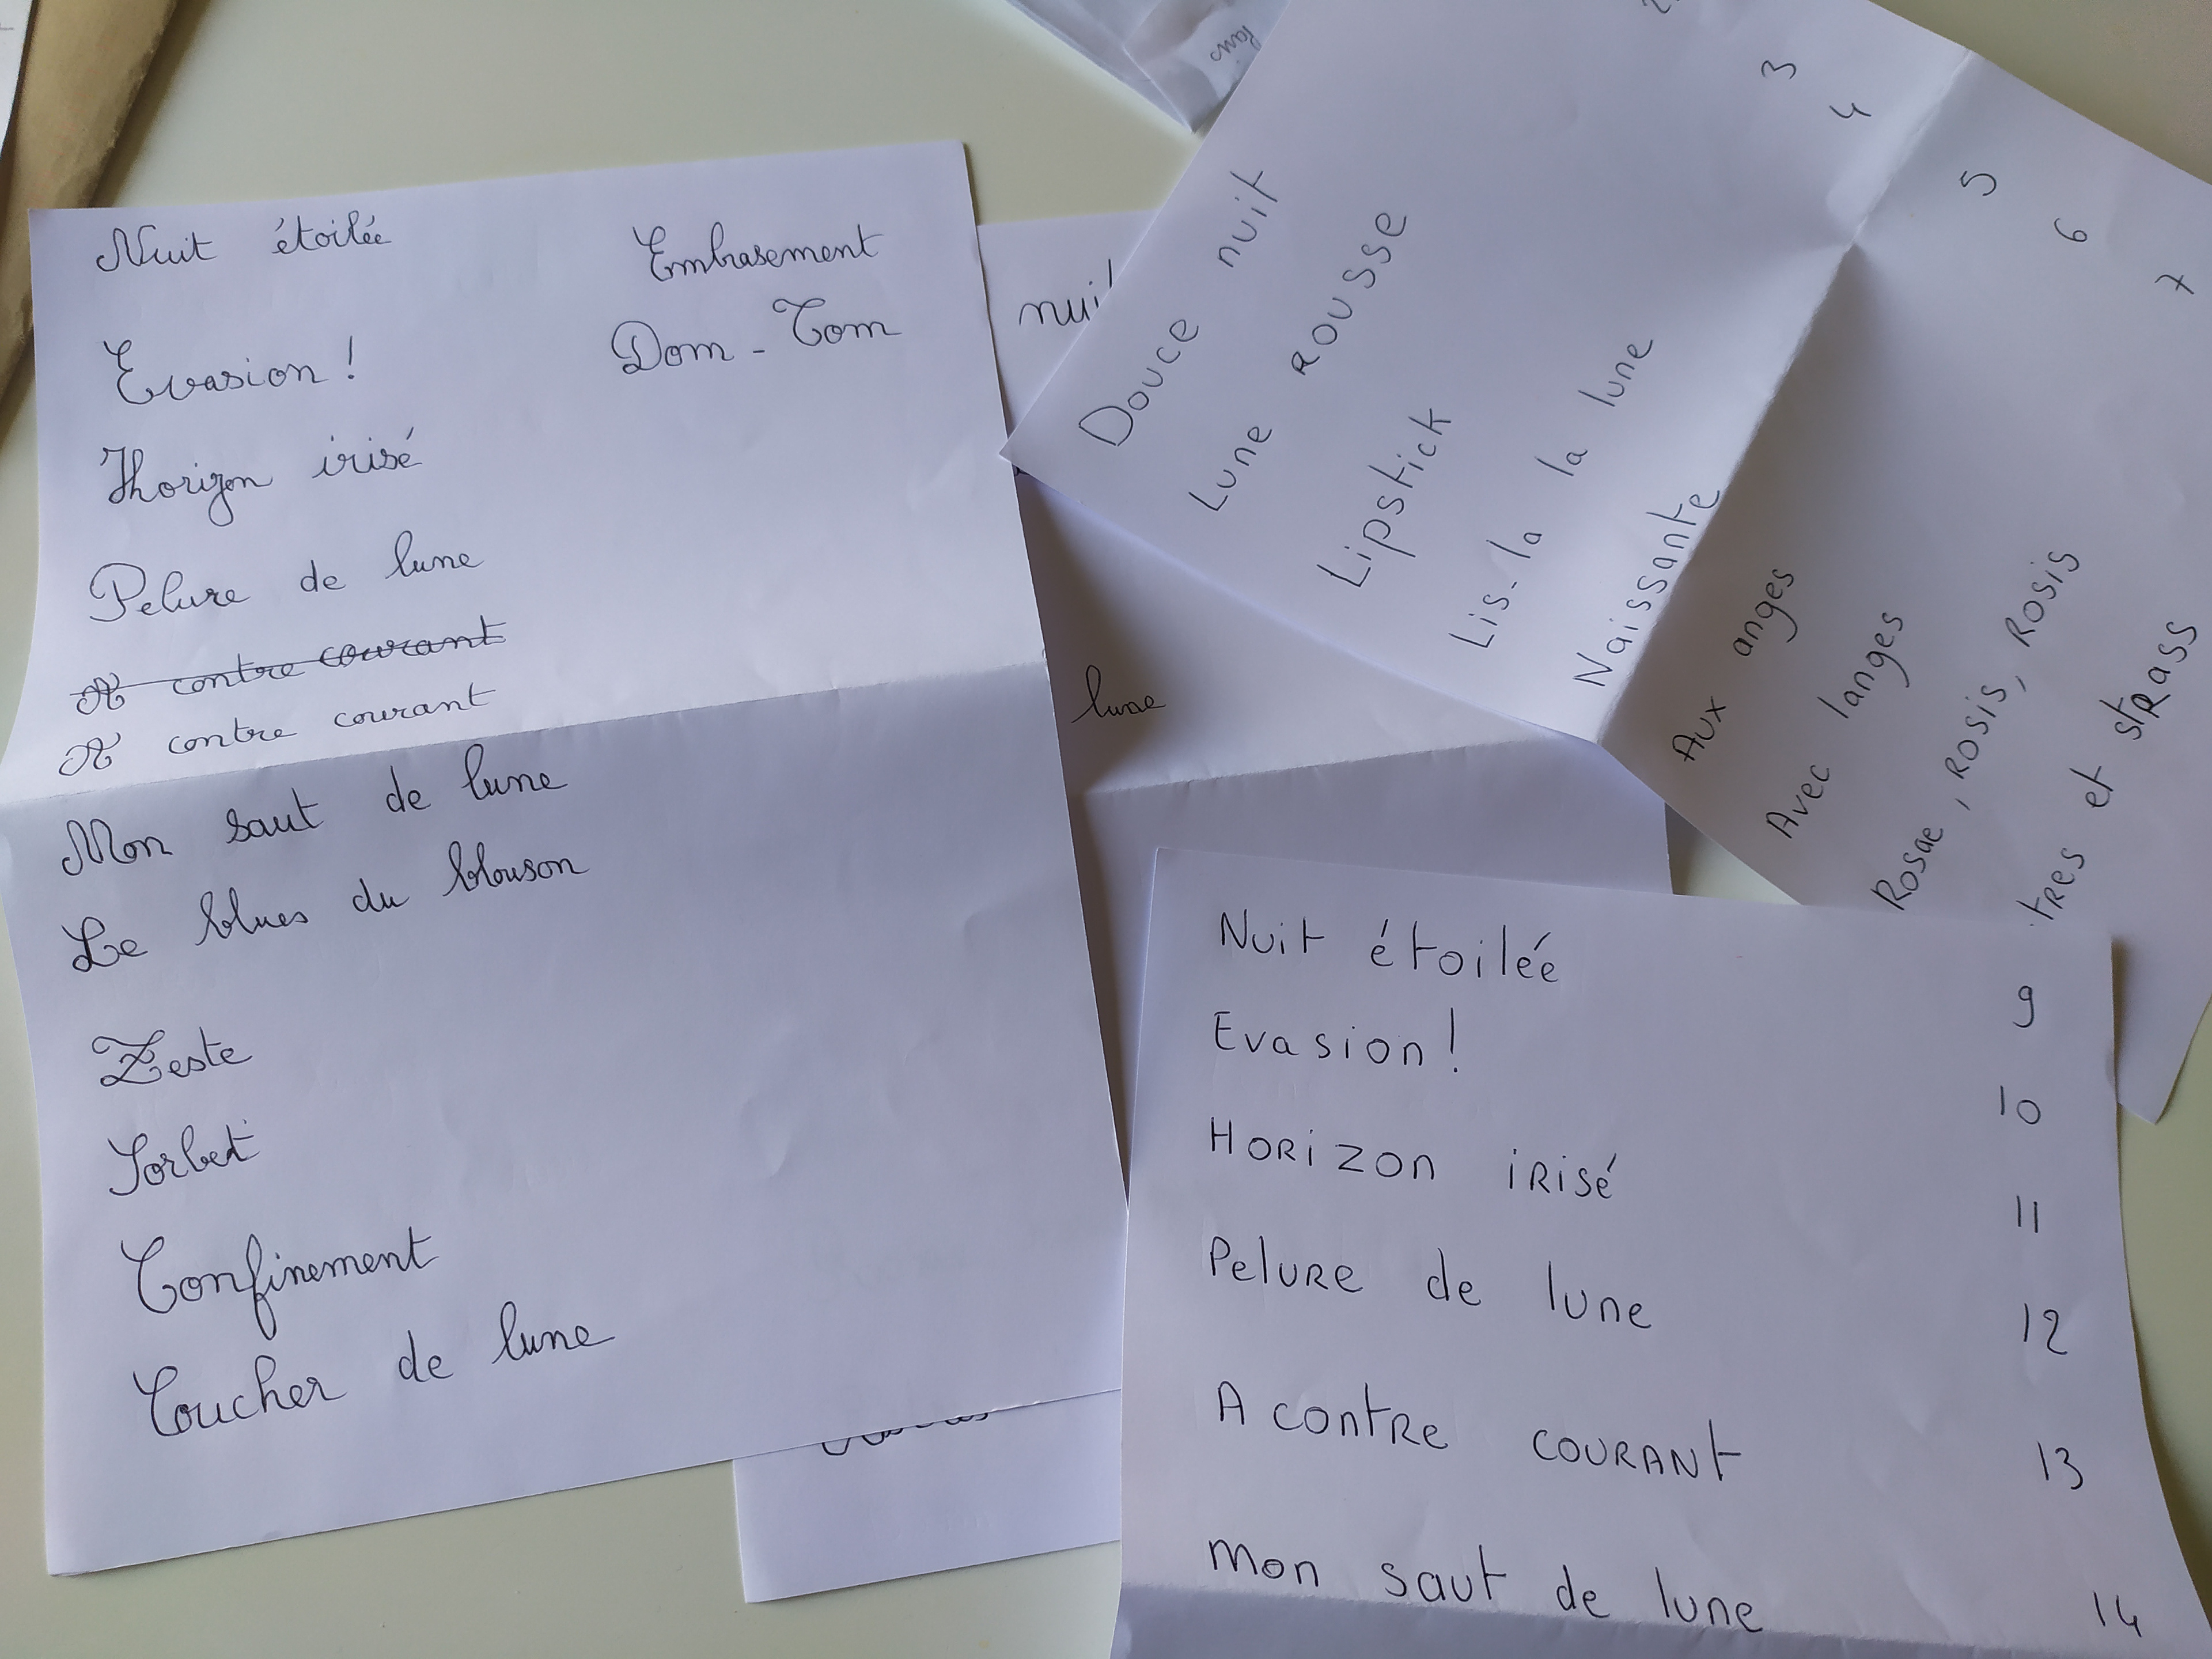 Nuit étoilée
Embrasement
Evasion !
Dom-Tom
Horizon irisé
Pelure de lune
A contre courant
A contre courant
Mon saut de lune
Le blues du blouson
Zeste
Sorbet
Confinement
Coucher de lune
lune
Douce nuit
Lune rousse 3
Lipstick 4
Lis-la la lune
Naissante 5
Aux anges 6
Avec langes 7
Rosae, rosis, rosis
et strass
Nuit étoilée 9
Evasion ! 10
Horizon irisé 11
Pelure de lune 12
A contre courant 13
Mon saut de lune 14